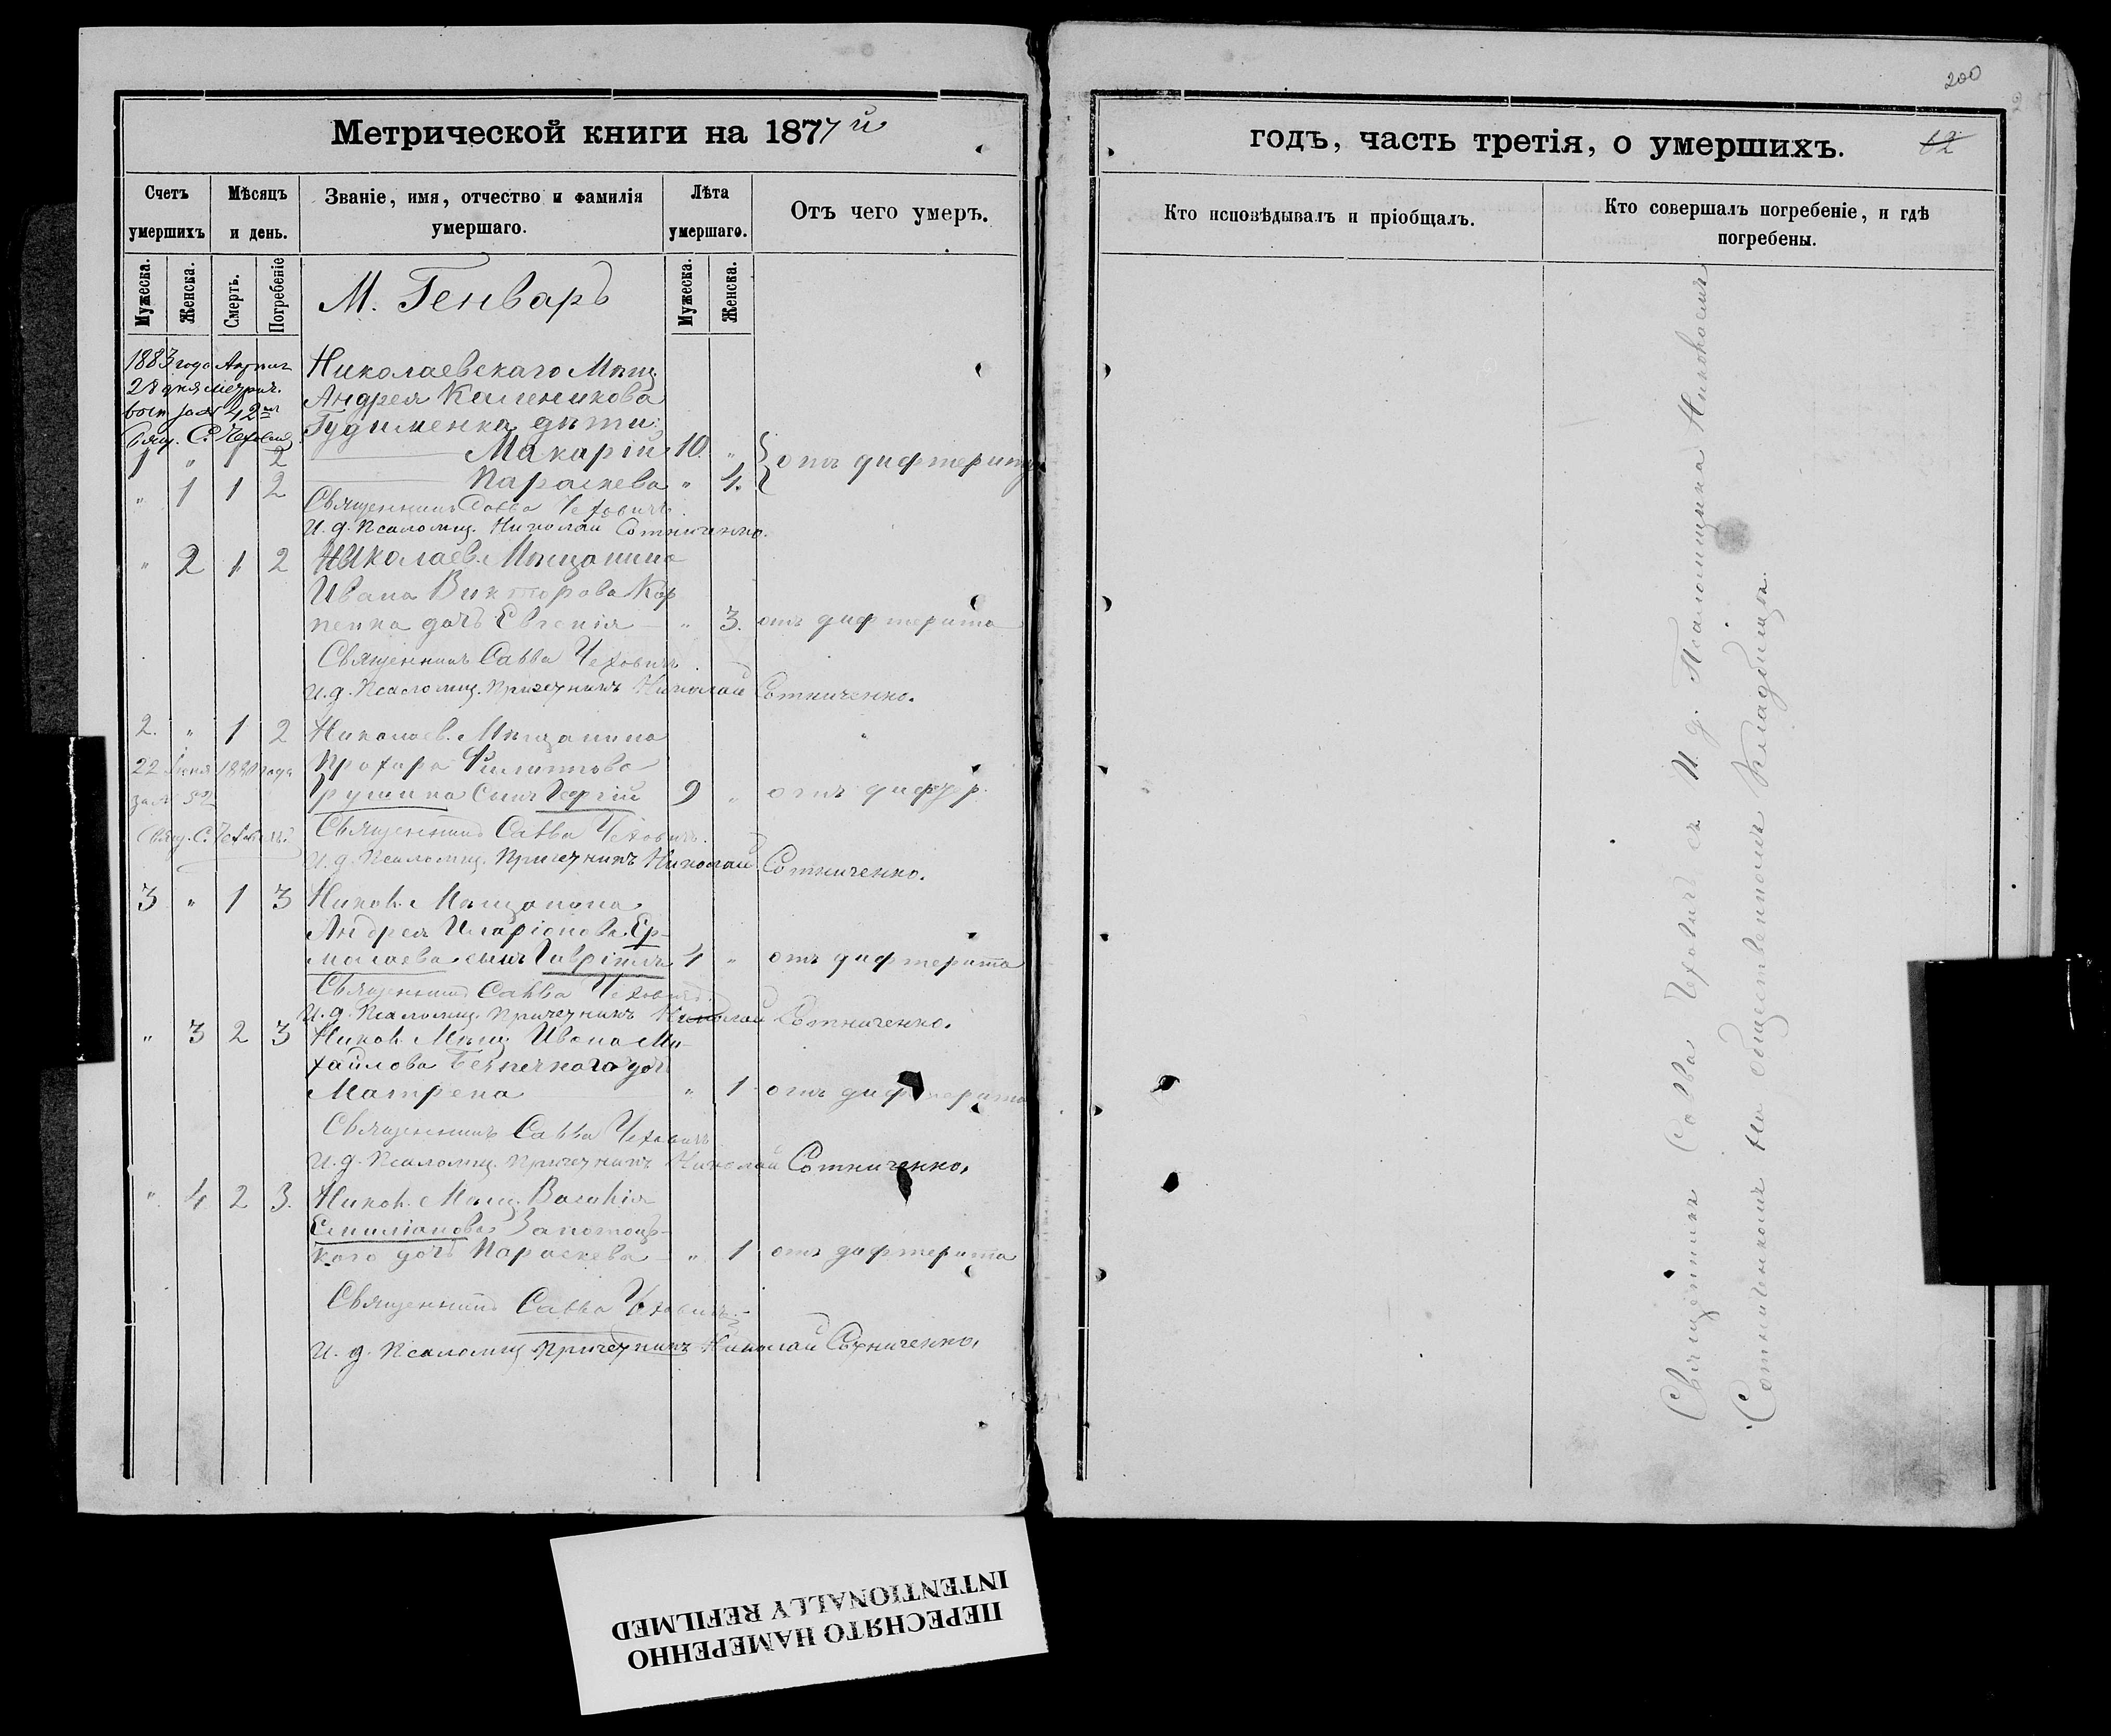 200
Метрической книги на 1877й
годъ, часть третія, о умершихъ.
12
Счетъ умершихъ
Мѣсяцъ и день.
Званіе, имя, отчество и фамилія умершаго.
Лѣта умершаго.
Отъ чего умеръ.
Кто исповѣдывалъ и пріобщалъ.
Кто совершалъ погребеніе, и гдѣ погребены.
Мужеска.
Женска.
Смерть.
Погребеніе
Мужеска.
Женска.
М. Генварь
1883 года
28 дня метрич.
42
Николаевскаго Мѣщ.
Андрея
Гудименка дѣти:
1 " 1 2 Макарій 10. " отъ дифтерита
" 1 1 2 Параскева " 4.
Священникъ Савва Чеховичъ
И. д. Псаломщ. Николай Сотниченко.
" 2 1 2 Николаев. Мѣщанина
Ивана Викторова Кар
пенка дочь Евгенія " 3. отъ дифтерита
Священникъ Савва Чеховичъ.
И. д. Псаломщ. Причетникъ Николай Сотниченко.
2. " 1 2 Николаев. Мѣщанина
22 Іюня 1880 года Прохора Филиппова
52 сынъ Георгій 9 " отъ дифтр.
Свящ. С. Чеховичъ
Священникъ Савва Чеховичъ.
И. д. Псаломщ. Причетникъ Николай Сотниченко.
3 " 1 3 Никол. Мѣщанина
Андрея Иларіонова Ер-
малаева сынъ Гавріилъ 4 " отъ дифтерита
Священникъ Савва Чеховичъ.
И. д. Псаломщ. Причетникъ Николай Сотниченко.
" 3 2 3 Никол. Мѣщ. Ивана Ми-
хайлова дочь
Матрена " 1 отъ дифтерита
Священникъ Савва Чеховичъ
И. д. Псаломщ. Причетникъ Николай Сотниченко.
" 4 2 3. Никол. Мѣщ. Василія
Емиліанова Запотоц-
кого дочь Параскева " 1 отъ дифтерита
Священникъ Савва Чеховичъ.
И. д. Псаломщ. Причетникъ Николай Сотниченко.
Священникъ Савва Чеховичъ съ И. д. Псаломщика Николаемъ
Сотниченкомъ на общественномъ Кладбищѣ.
ПЕРЕСНЯТО НАМЕРЕННО
INTENTIONALLY REFILMED